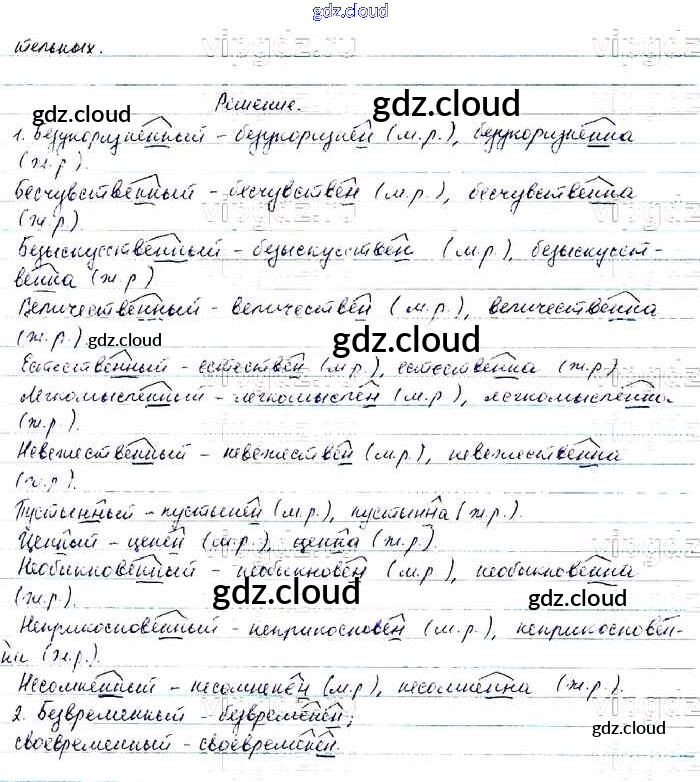 gdz.cloud
тельных.
vipgdz.ru
gdz.cloud
gdz.cloud
Решение.
1. Безукоризненный - безукоризнен (м.р.), безукоризненна
(ж.р).
Бесчувственный - бесчувствен (м.р.), бесчувственна
(ж.р)
Безыскусственный - безыскусствен (м.р.), безыскусст-
венна (ж.р)
Величественный - величествен (м.р.), величественна
(ж.р.) gdz.cloud
gdz.cloud
Естественный - естествен (м.р), естественна (ж.р)
Легкомысленный - легкомыслен (м.р), легкомысленна
(ж.р).
Невежественный - невежествен (м.р), невежественна
(ж.р).
Пустынный - пустынен (м.р), пустынна (ж.р).
Ценный - ценен (м.р), ценна (ж.р).
Необыкновенный - необыкновен (м.р), необыкновенна
(ж.р).
gdz.cloud
gdz.cloud
Неприкосновенный - неприкосновен (м.р), неприкосновен-
на (ж.р.).
Несомненный - несомненен (м.р), несомненна (ж.р).
2. Безвременный - безвременен;
своевременный - своевременен.
gdz.cloud